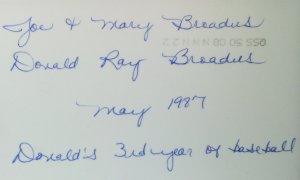 Joe & Mary Broadus
Donald Ray Broadus
May 1987
Donald's 3rd year of baseball